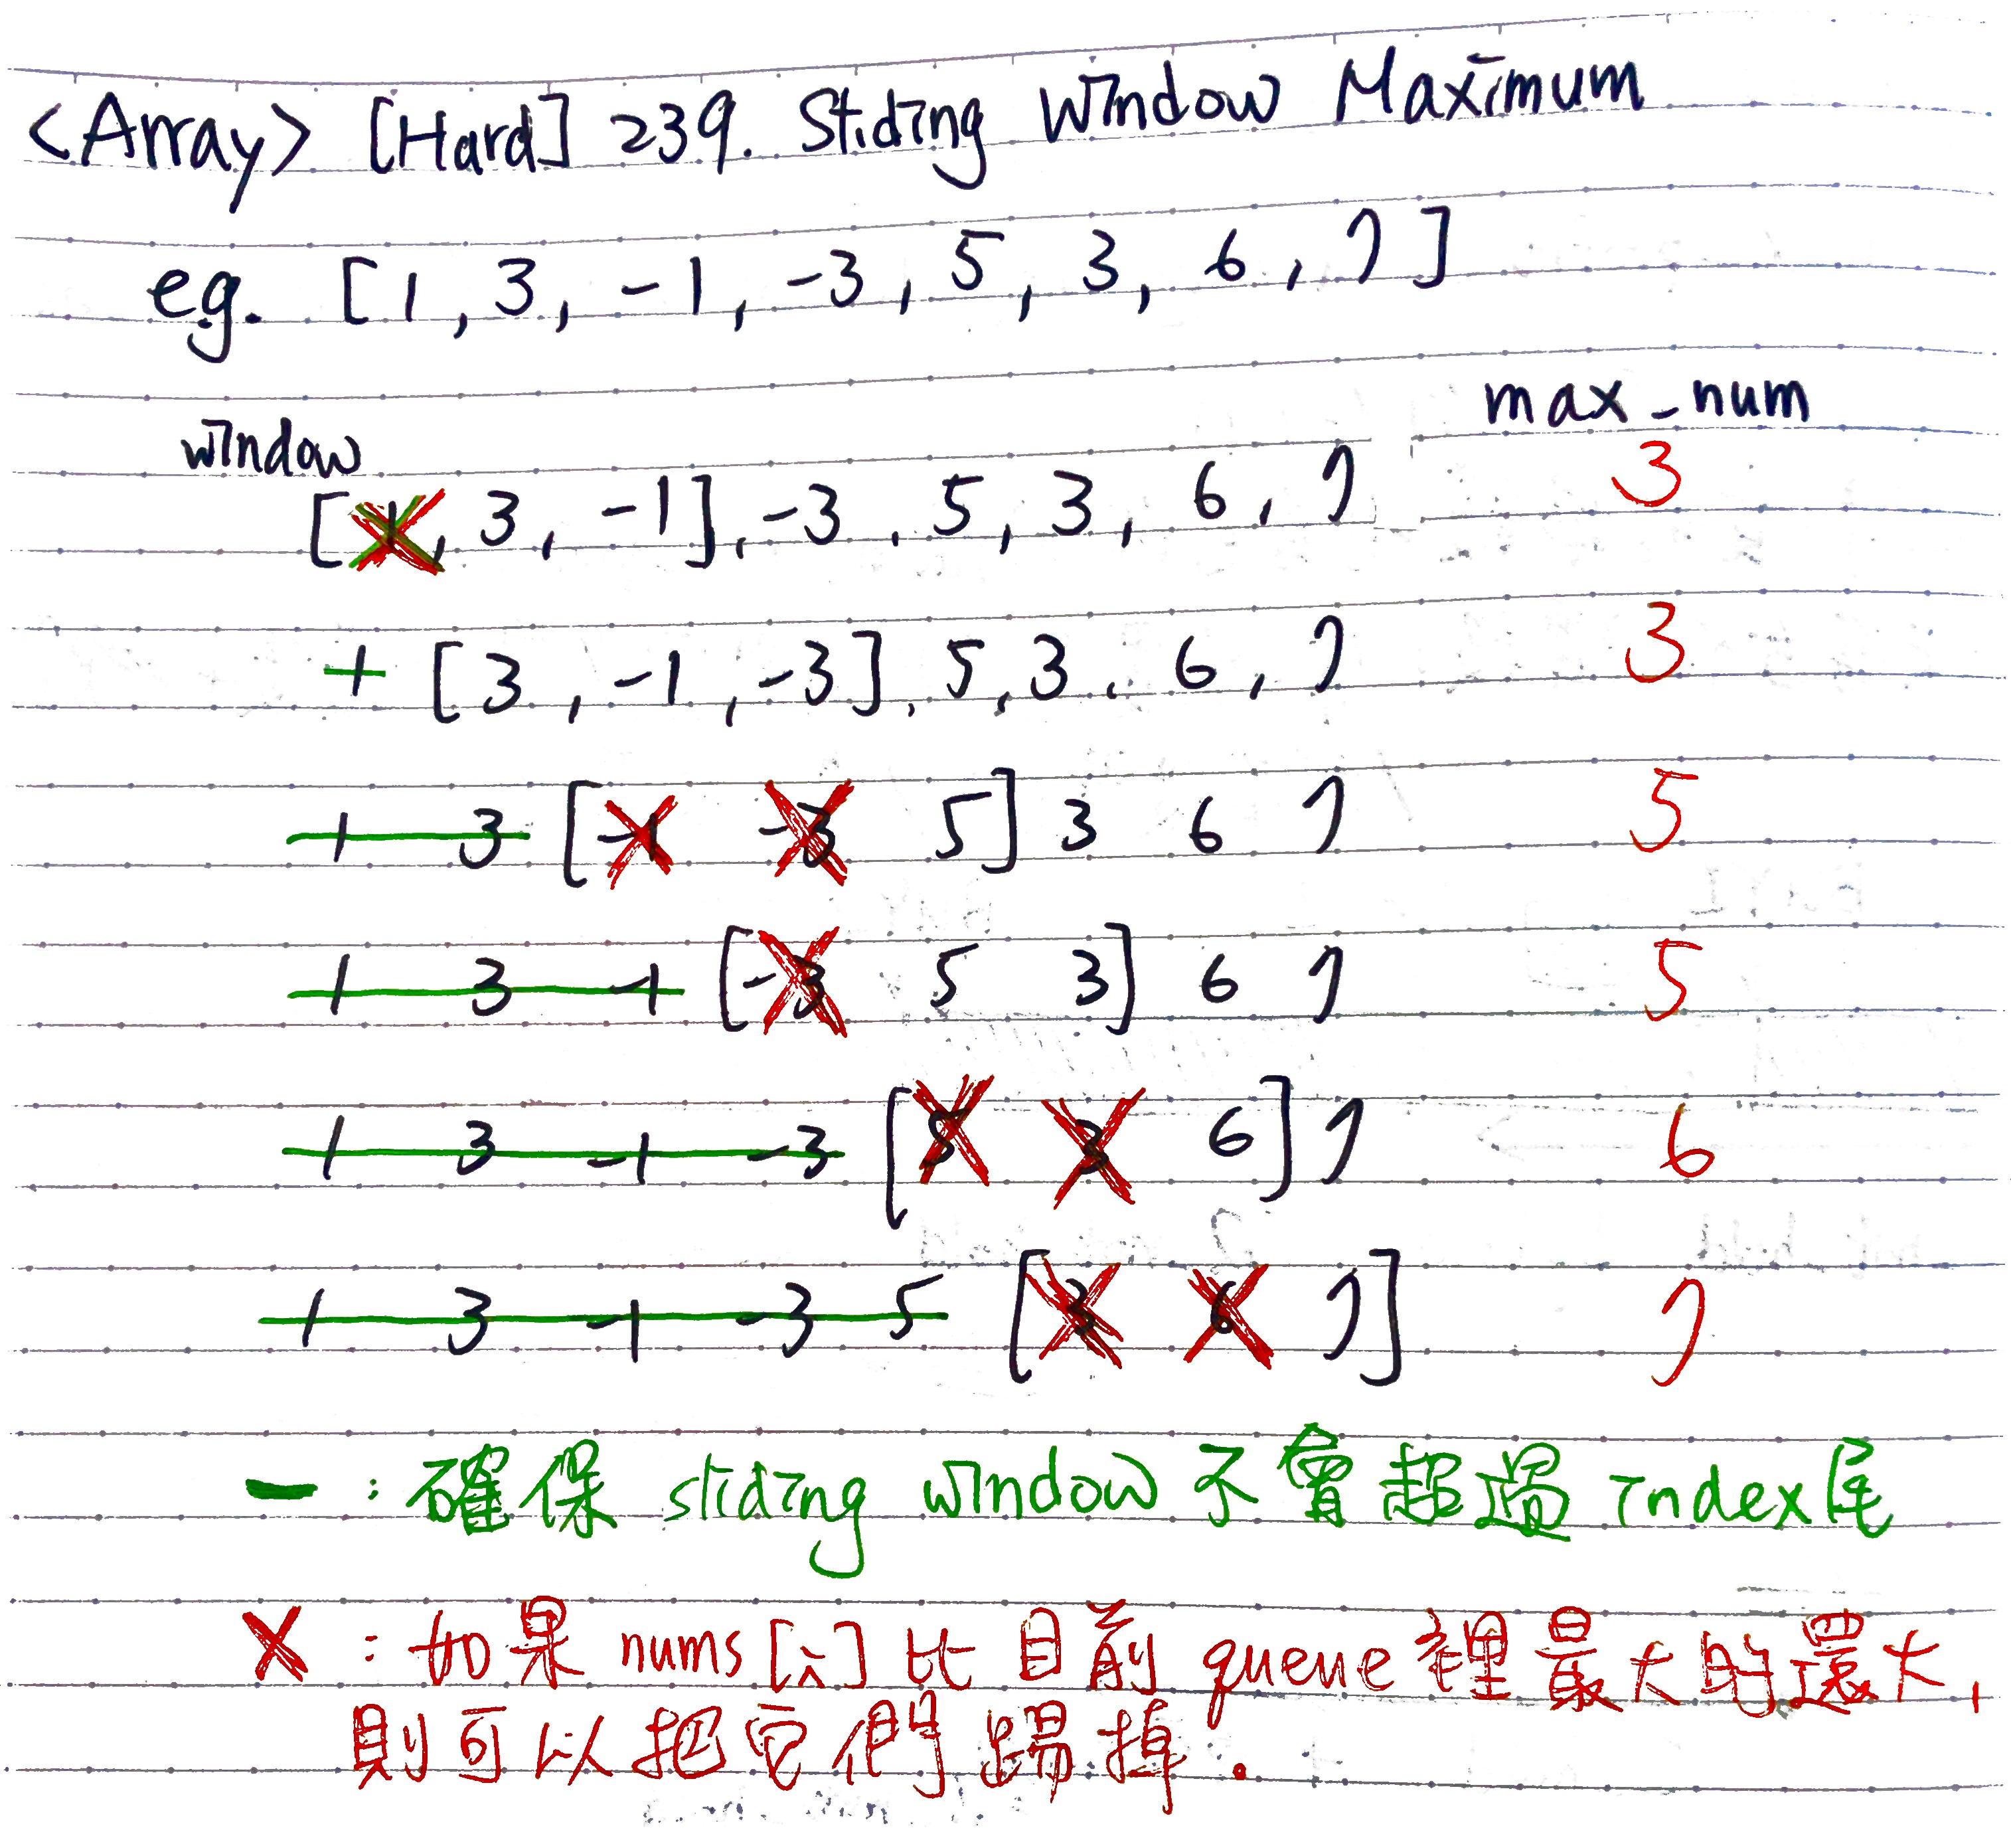 <Array> [Hard] 239. Sliding Window Maximum
eg. [1, 3, -1, -3, 5, 3, 6, 7]
max_num
window
[1, 3, -1], -3, 5, 3, 6, 7 3
1 [3, -1, -3], 5, 3, 6, 7 3
1 3 [-1 -3 5] 3 6 7 5
1 3 -1 [-3 5 3] 6 7 5
1 3 -1 -3 [5 3 6] 7 6
1 3 -1 -3 5 [3 6 7] 7
— : 確保 sliding window 不會超過 index 尾
X : 如果 nums[i] 比目前 queue 裡最大的還大,
則可以把它們踢掉.